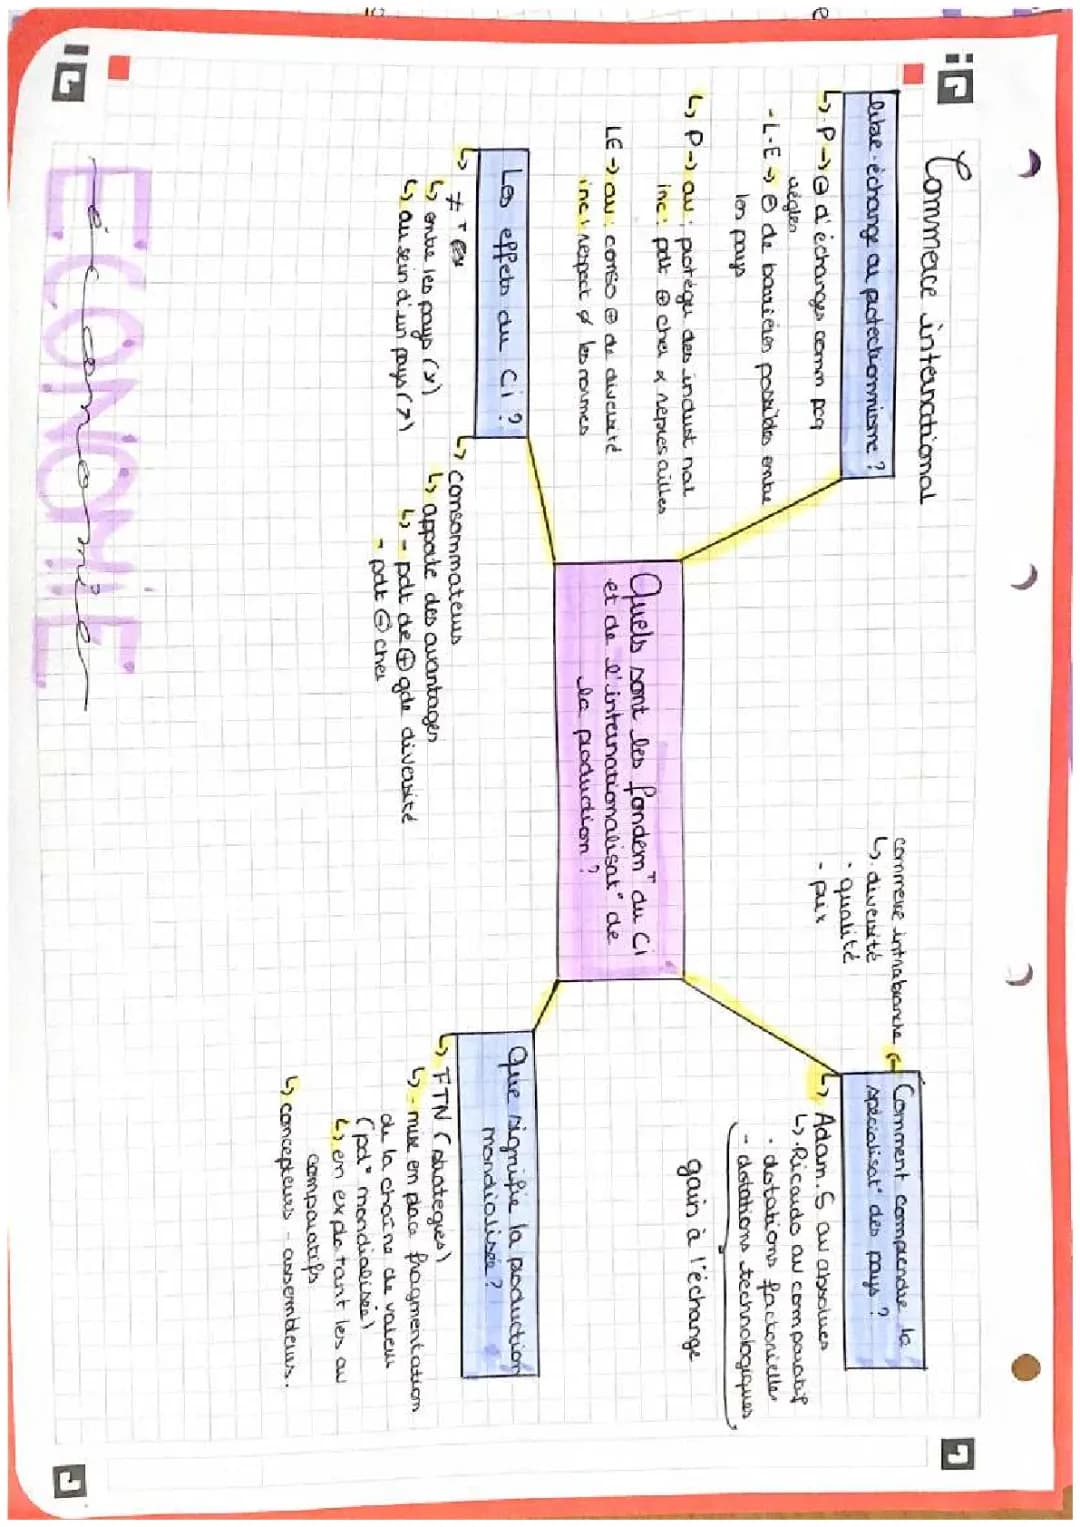 Commerce international
libre-échange ou protectionnisme ?
↳ · P → ⊖ d'échanges comm pcq
règles
- L-E → ⊖ de barrières possibles entre
les pays
↳ P → av : protéger des indust nat
inc : pdt ⊕ cher & représailles
LE → av : conso ⊕ de diversité
inc : respect ∅ les normes
Les effets du Ci ?
↳ entre les pays (↘)
↳ au sein d'un pays (↗)
↳ consommateurs
↳ apporte des avantages
↳ - pdt de ⊕ gde diversité
- pdt ⊖ cher
Quels sont les fondemᵀ du Ci
et de l'internationalisat° de
la production ?
commerce intrabranche
↳ · diversité
· qualité
- prix
Comment comprendre la
spécialisat° des pays ?
↳ Adam.S av absolues
↳ · Ricardo av comparatif
· dotations factorielles
- dotations technologiques
gain à l'échange
Que signifie la production
mondialisée ?
↳ FTN (stratégies)
↳ - mise en place fragmentation
de la chaîne de valeur
(pd° mondialisée)
↳ en exploitant les av
comparatifs
↳ concepteurs - assembleurs.
ECONOMIE
économie